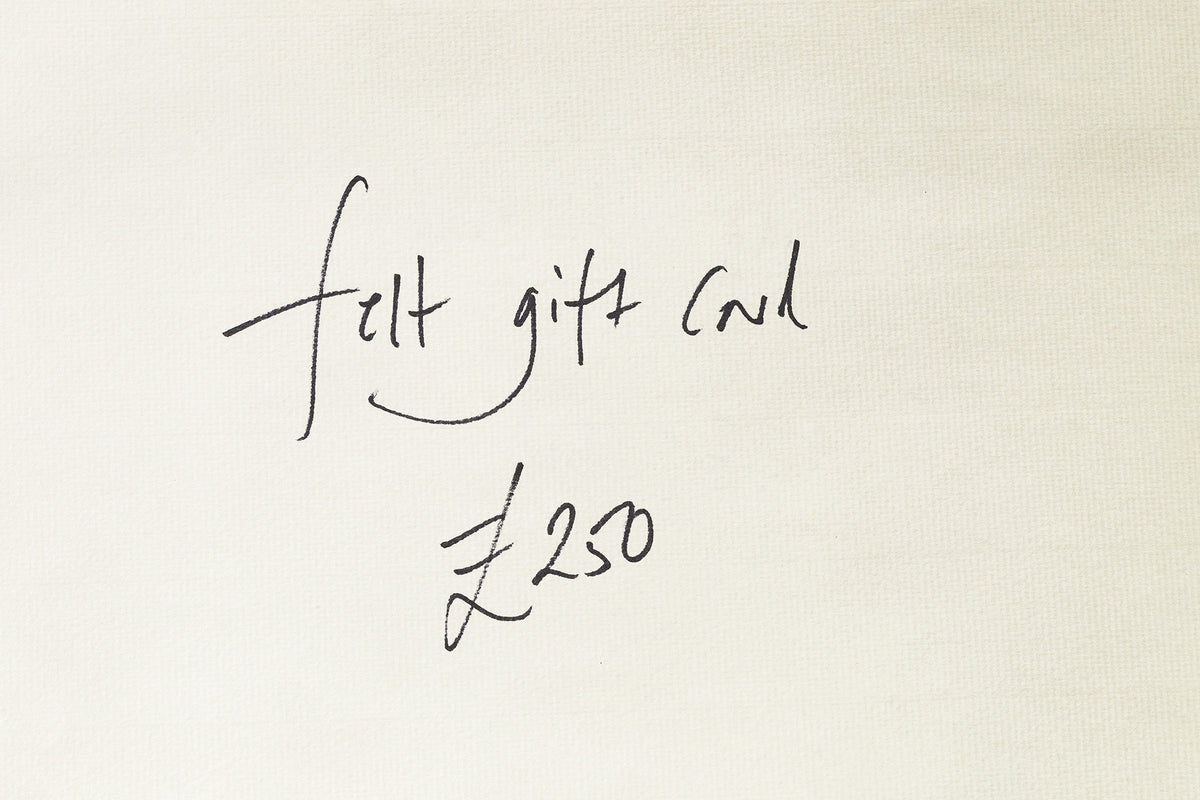 felt gift card
£250